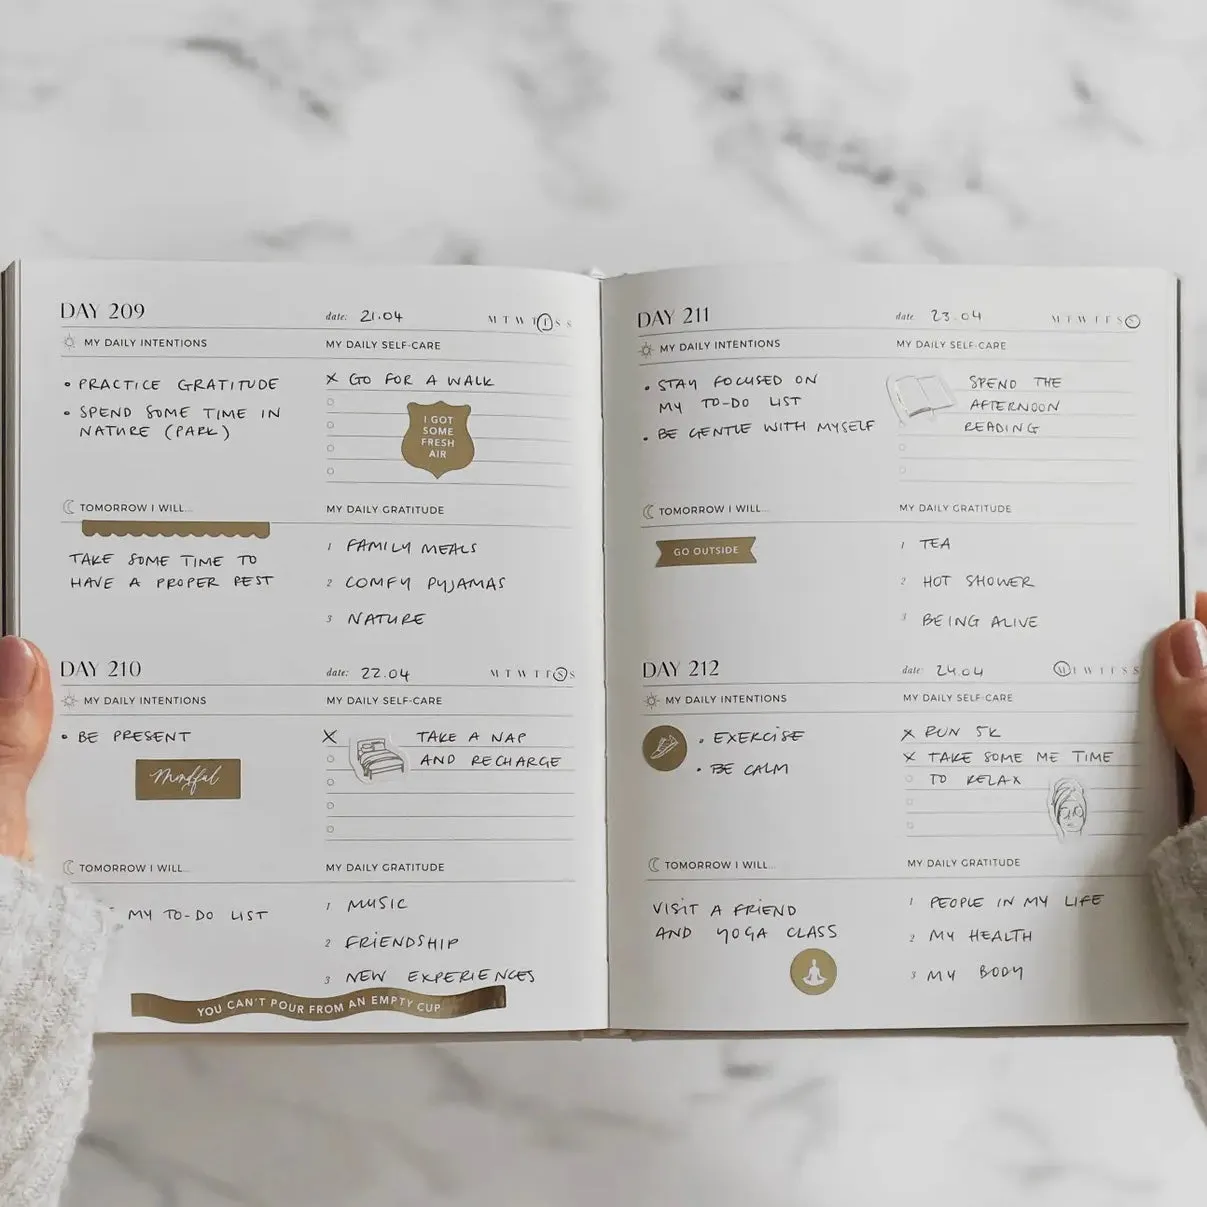 DAY 209
date: 21.04
M T W T F S S
MY DAILY INTENTIONS
• PRACTICE GRATITUDE
• SPEND SOME TIME IN
NATURE (PARK)
MY DAILY SELF-CARE
X GO FOR A WALK
I GOT
SOME
FRESH
AIR
TOMORROW I WILL...
TAKE SOME TIME TO
HAVE A PROPER REST
MY DAILY GRATITUDE
1 FAMILY MEALS
2 COMFY PYJAMAS
3 NATURE
DAY 210
date: 22.04
M T W T F S S
MY DAILY INTENTIONS
• BE PRESENT
Mindful
MY DAILY SELF-CARE
X TAKE A NAP
AND RECHARGE
TOMORROW I WILL...
MY TO-DO LIST
MY DAILY GRATITUDE
1 MUSIC
2 FRIENDSHIP
3 NEW EXPERIENCES
YOU CAN'T POUR FROM AN EMPTY CUP
DAY 211
date: 23.04
M T W T F S S
MY DAILY INTENTIONS
• STAY FOCUSED ON
MY TO-DO LIST
• BE GENTLE WITH MYSELF
MY DAILY SELF-CARE
SPEND THE
AFTERNOON
READING
TOMORROW I WILL...
GO OUTSIDE
MY DAILY GRATITUDE
1 TEA
2 HOT SHOWER
3 BEING ALIVE
DAY 212
date: 24.04
M T W T F S S
MY DAILY INTENTIONS
• EXERCISE
• BE CALM
MY DAILY SELF-CARE
X RUN 5K
X TAKE SOME ME TIME
TO RELAX
TOMORROW I WILL...
VISIT A FRIEND
AND YOGA CLASS
MY DAILY GRATITUDE
1 PEOPLE IN MY LIFE
2 MY HEALTH
3 MY BODY